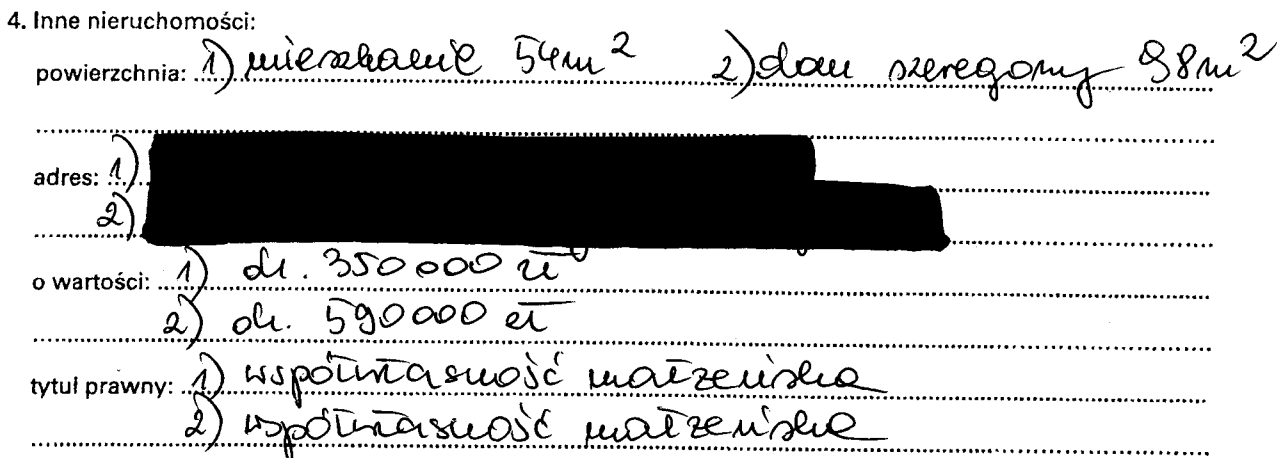 4. Inne nieruchomości:
powierzchnia: 1) mieszkanie 54m² 2) dom szeregowy 98m²
adres: 1)
2)
o wartości: 1) ok. 350 000 zł
2) ok. 590 000 zł
tytuł prawny: 1) współwłasność małżeńska
2) współwłasność małżeńska